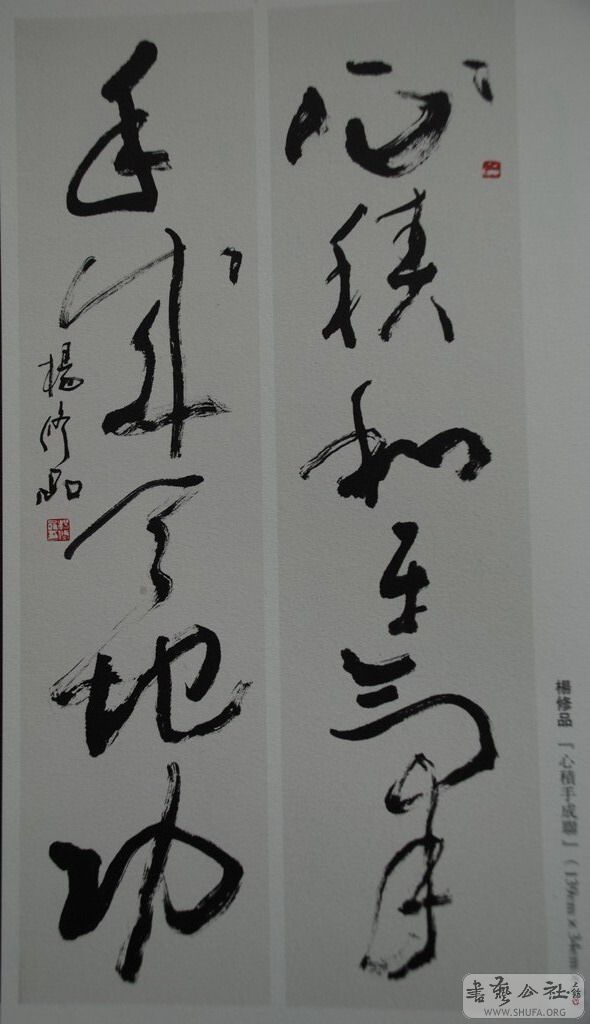 心積和平氣
手成天地功
楊修品
楊修品『心積手成聯』（139cm×34cm
書藝公社
WWW.SHUFA.ORG